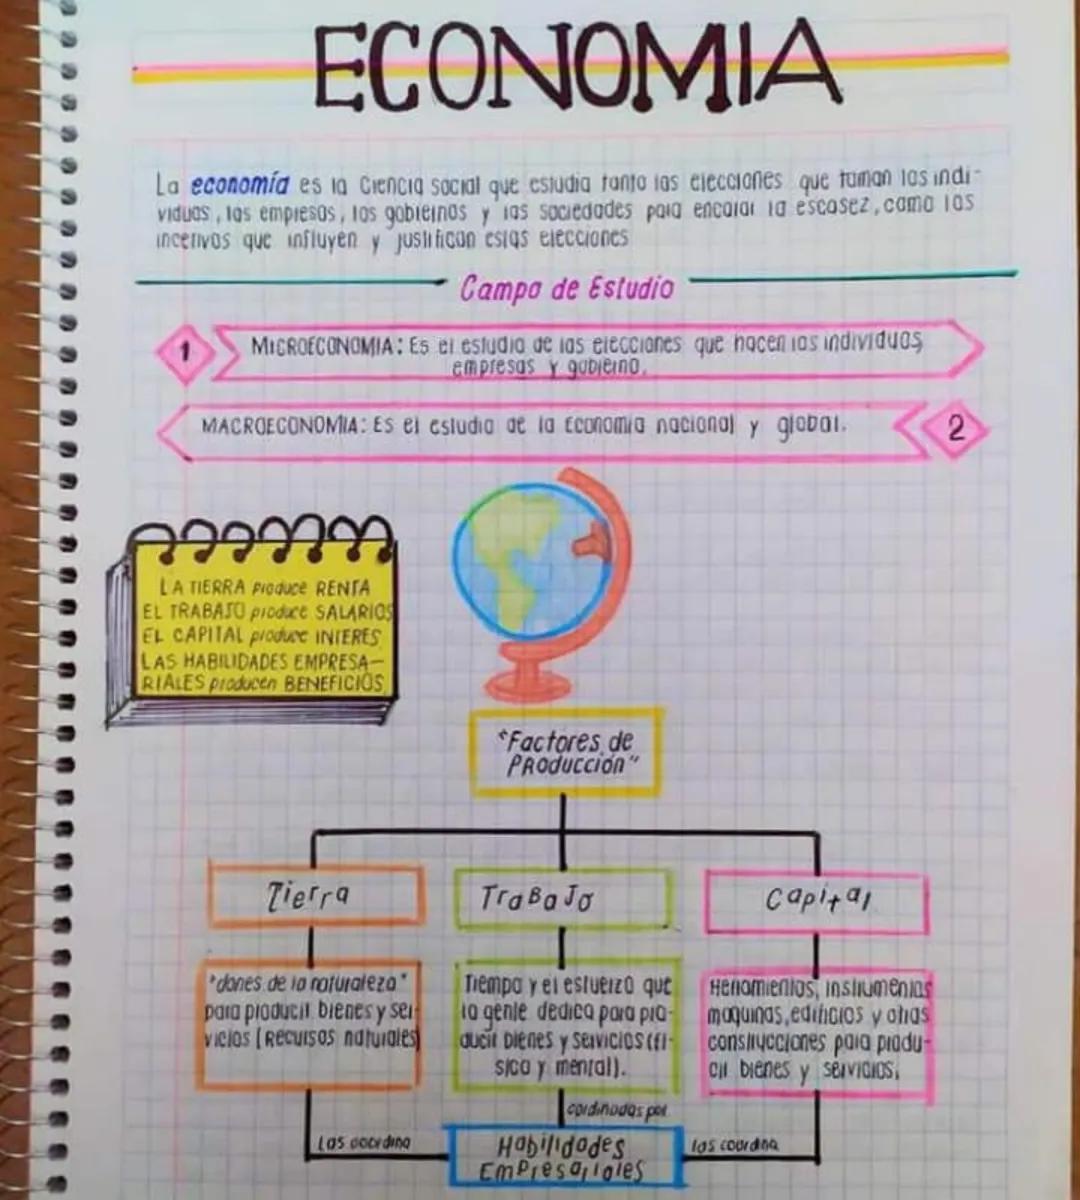 ECONOMIA
La economía es la Ciencia social que estudia tanto las elecciones que toman los indi-
viduos, las empresas, los gobiernos y las sociedades para encarar la escasez, como los
incetivos que influyen y justifican estas elecciones
Campo de Estudio
1
MICROECONOMIA: Es el estudio de las elecciones que hacen los individuos,
empresas y gobierno.
MACROECONOMIA: Es el estudio de la Economia nacional y global.
2
LA TIERRA produce RENTA
EL TRABAJO produce SALARIOS
EL CAPITAL produce INTERES
LAS HABILIDADES EMPRESA-
RIALES producen BENEFICIOS
"Factores de
PRODUCCIÓN"
Tierra
TRABAJO
Capital
"dones de la naturaleza"
para producir bienes y ser-
vicios (Recursos naturales)
Tiempo y el esfuerzo que
la gente dedica para pro-
ducir bienes y servicios (fí-
sico y mental).
Herramientas, instrumentos
maquinas, edificios y otras
construcciones para produ-
cir bienes y servicios.
cordinados por
Las coordina
Habilidades
Empresariales
las coordina